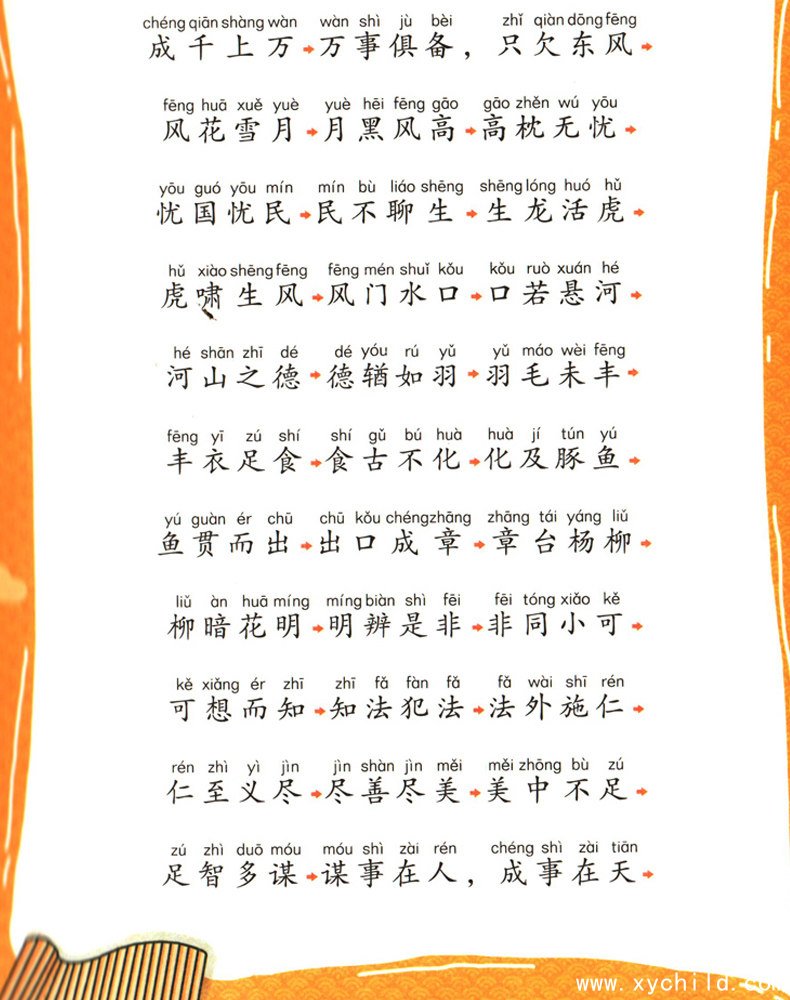 chéng qiān shàng wàn wàn shì jù bèi zhǐ qiàn dōng fēng
成千上万➡万事俱备，只欠东风➡
fēng huā xuě yuè yuè hēi fēng gāo gāo zhěn wú yōu
风花雪月➡月黑风高➡高枕无忧➡
yōu guó yōu mín mín bù liáo shēng shēng lóng huó hǔ
忧国忧民➡民不聊生➡生龙活虎➡
hǔ xiào shēng fēng fēng mén shuǐ kǒu kǒu ruò xuán hé
虎啸生风➡风门水口➡口若悬河➡
hé shān zhī dé dé yóu rú yǔ yǔ máo wèi fēng
河山之德➡德輶如羽➡羽毛未丰➡
fēng yī zú shí shí gǔ bú huà huà jí tún yú
丰衣足食➡食古不化➡化及豚鱼➡
yú guàn ér chū chū kǒu chéng zhāng zhāng tái yáng liǔ
鱼贯而出➡出口成章➡章台杨柳➡
liǔ àn huā míng míng biàn shì fēi fēi tóng xiǎo kě
柳暗花明➡明辨是非➡非同小可➡
kě xiǎng ér zhī zhī fǎ fàn fǎ fǎ wài shī rén
可想而知➡知法犯法➡法外施仁➡
rén zhì yì jìn jìn shàn jìn měi měi zhōng bù zú
仁至义尽➡尽善尽美➡美中不足➡
zú zhì duō móu móu shì zài rén chéng shì zài tiān
足智多谋➡谋事在人，成事在天➡
www.xychild.com